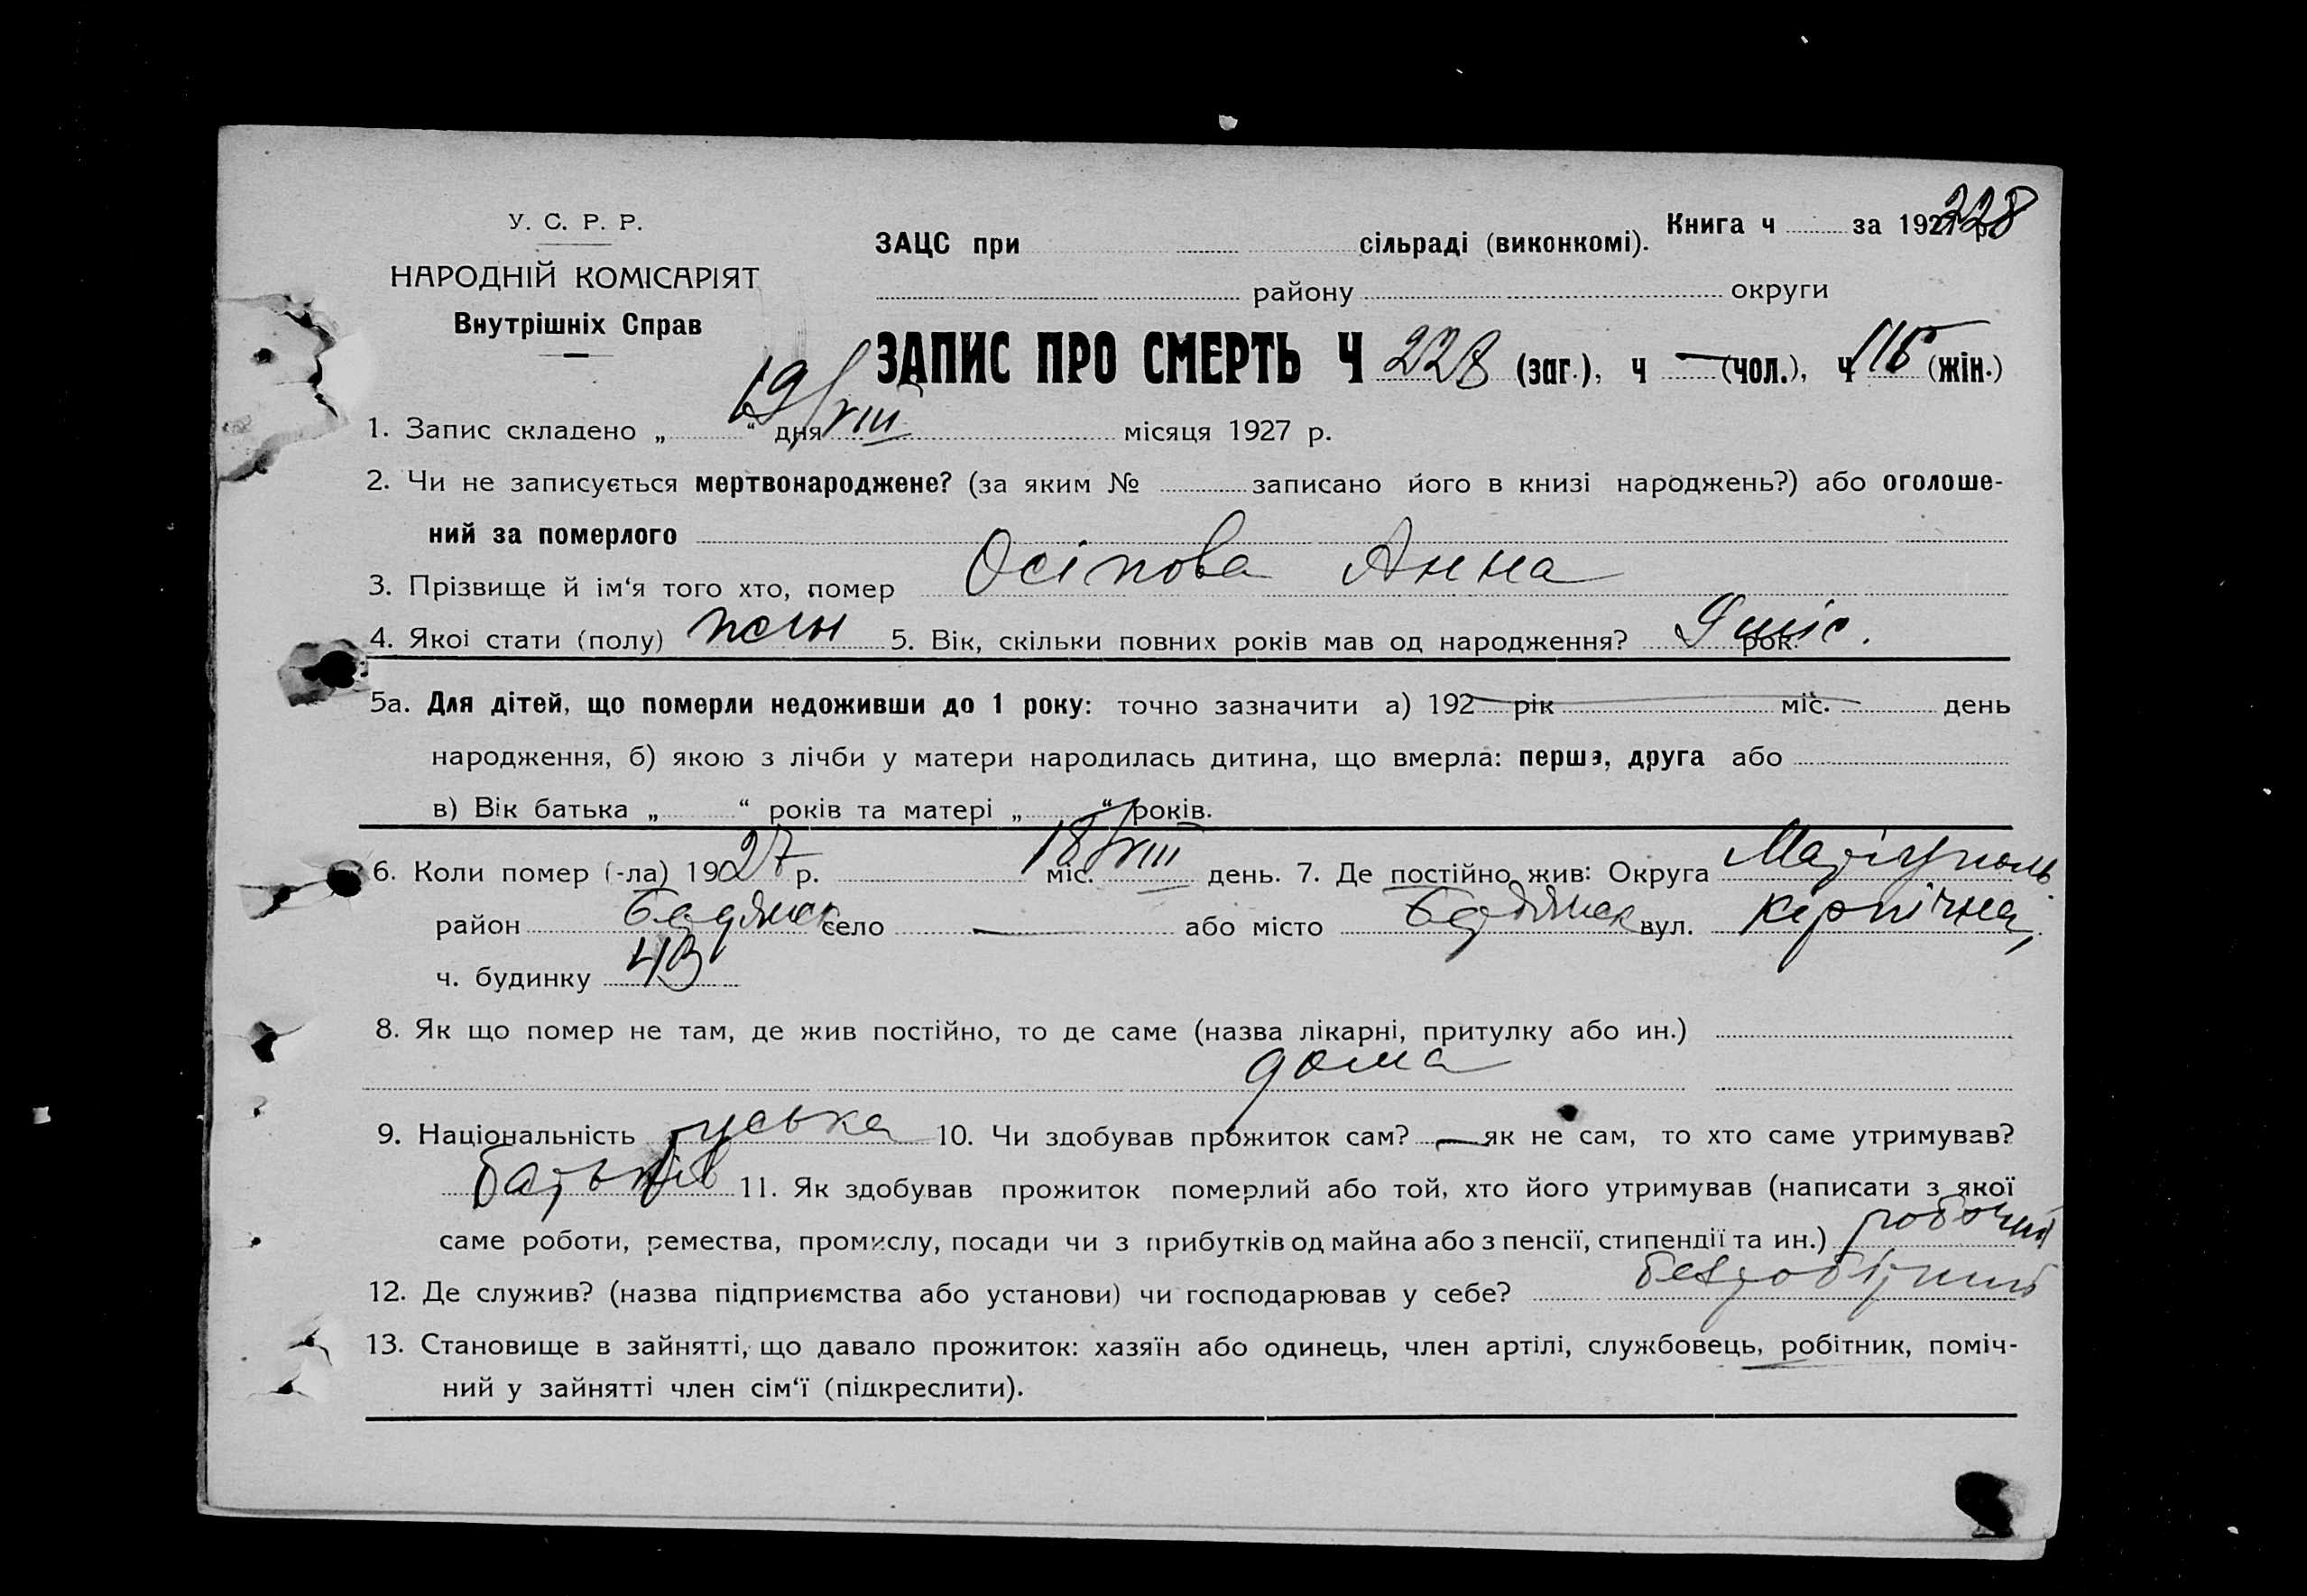 228
У. С. Р. Р.
НАРОДНІЙ КОМІСАРІЯТ
Внутрішніх Справ
ЗАЦС при сільраді (виконкомі). Книга ч за 1927 р.
району округи
ЗАПИС ПРО СМЕРТЬ Ч 228 (заг.), ч — (чол.), ч 116 (жін.)
1. Запис складено „ 19/VIII “ дня місяця 1927 р.
2. Чи не записується мертвонароджене? (за яким № записано його в книзі народжень?) або оголоше-
ний за померлого
3. Прізвище й ім‘я того хто, помер Осіпова Анна
4. Якої стати (полу) жін 5. Вік, скільки повних років мав од народження? 9 міс. рок.
5а. Для дітей, що померли недоживши до 1 року: точно зазначити а) 192 рік міс. день
народження, б) якою з лічби у матери народилась дитина, що вмерла: перша, друга або
в) Вік батька „ “ років та матері „ “ років.
6. Коли помер (-ла) 1927 р. 18/VIII міс. день. 7. Де постійно жив: Округа Маріуполь
район Бердянск село — або місто Бердянск вул. Кирпічна,
ч. будинку 43
8. Як що помер не там, де жив постійно, то де саме (назва лікарні, притулку або ин.)
дома
9. Національність руська 10. Чи здобував прожиток сам? — як не сам, то хто саме утримував?
батьків 11. Як здобував прожиток померлий або той, хто його утримував (написати з якої
саме роботи, ремества, промислу, посади чи з прибутків од майна або з пенсії, стипендії та ин.) робочий
12. Де служив? (назва підприємства або установи) чи господарював у себе? безробітний
13. Становище в зайнятті, що давало прожиток: хазяїн або одинець, член артілі, службовець, робітник, поміч-
ний у зайнятті член сім‘ї (підкреслити).